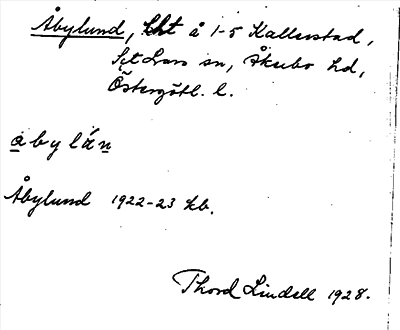 Åbylund, lht å 1-5 Kallerstad,
S:t Lars sn, Åkerbo hd,
Östergötl. l.
å b y l ä n
Åbylund 1922-23 kb.
Thord Lindell 1928.